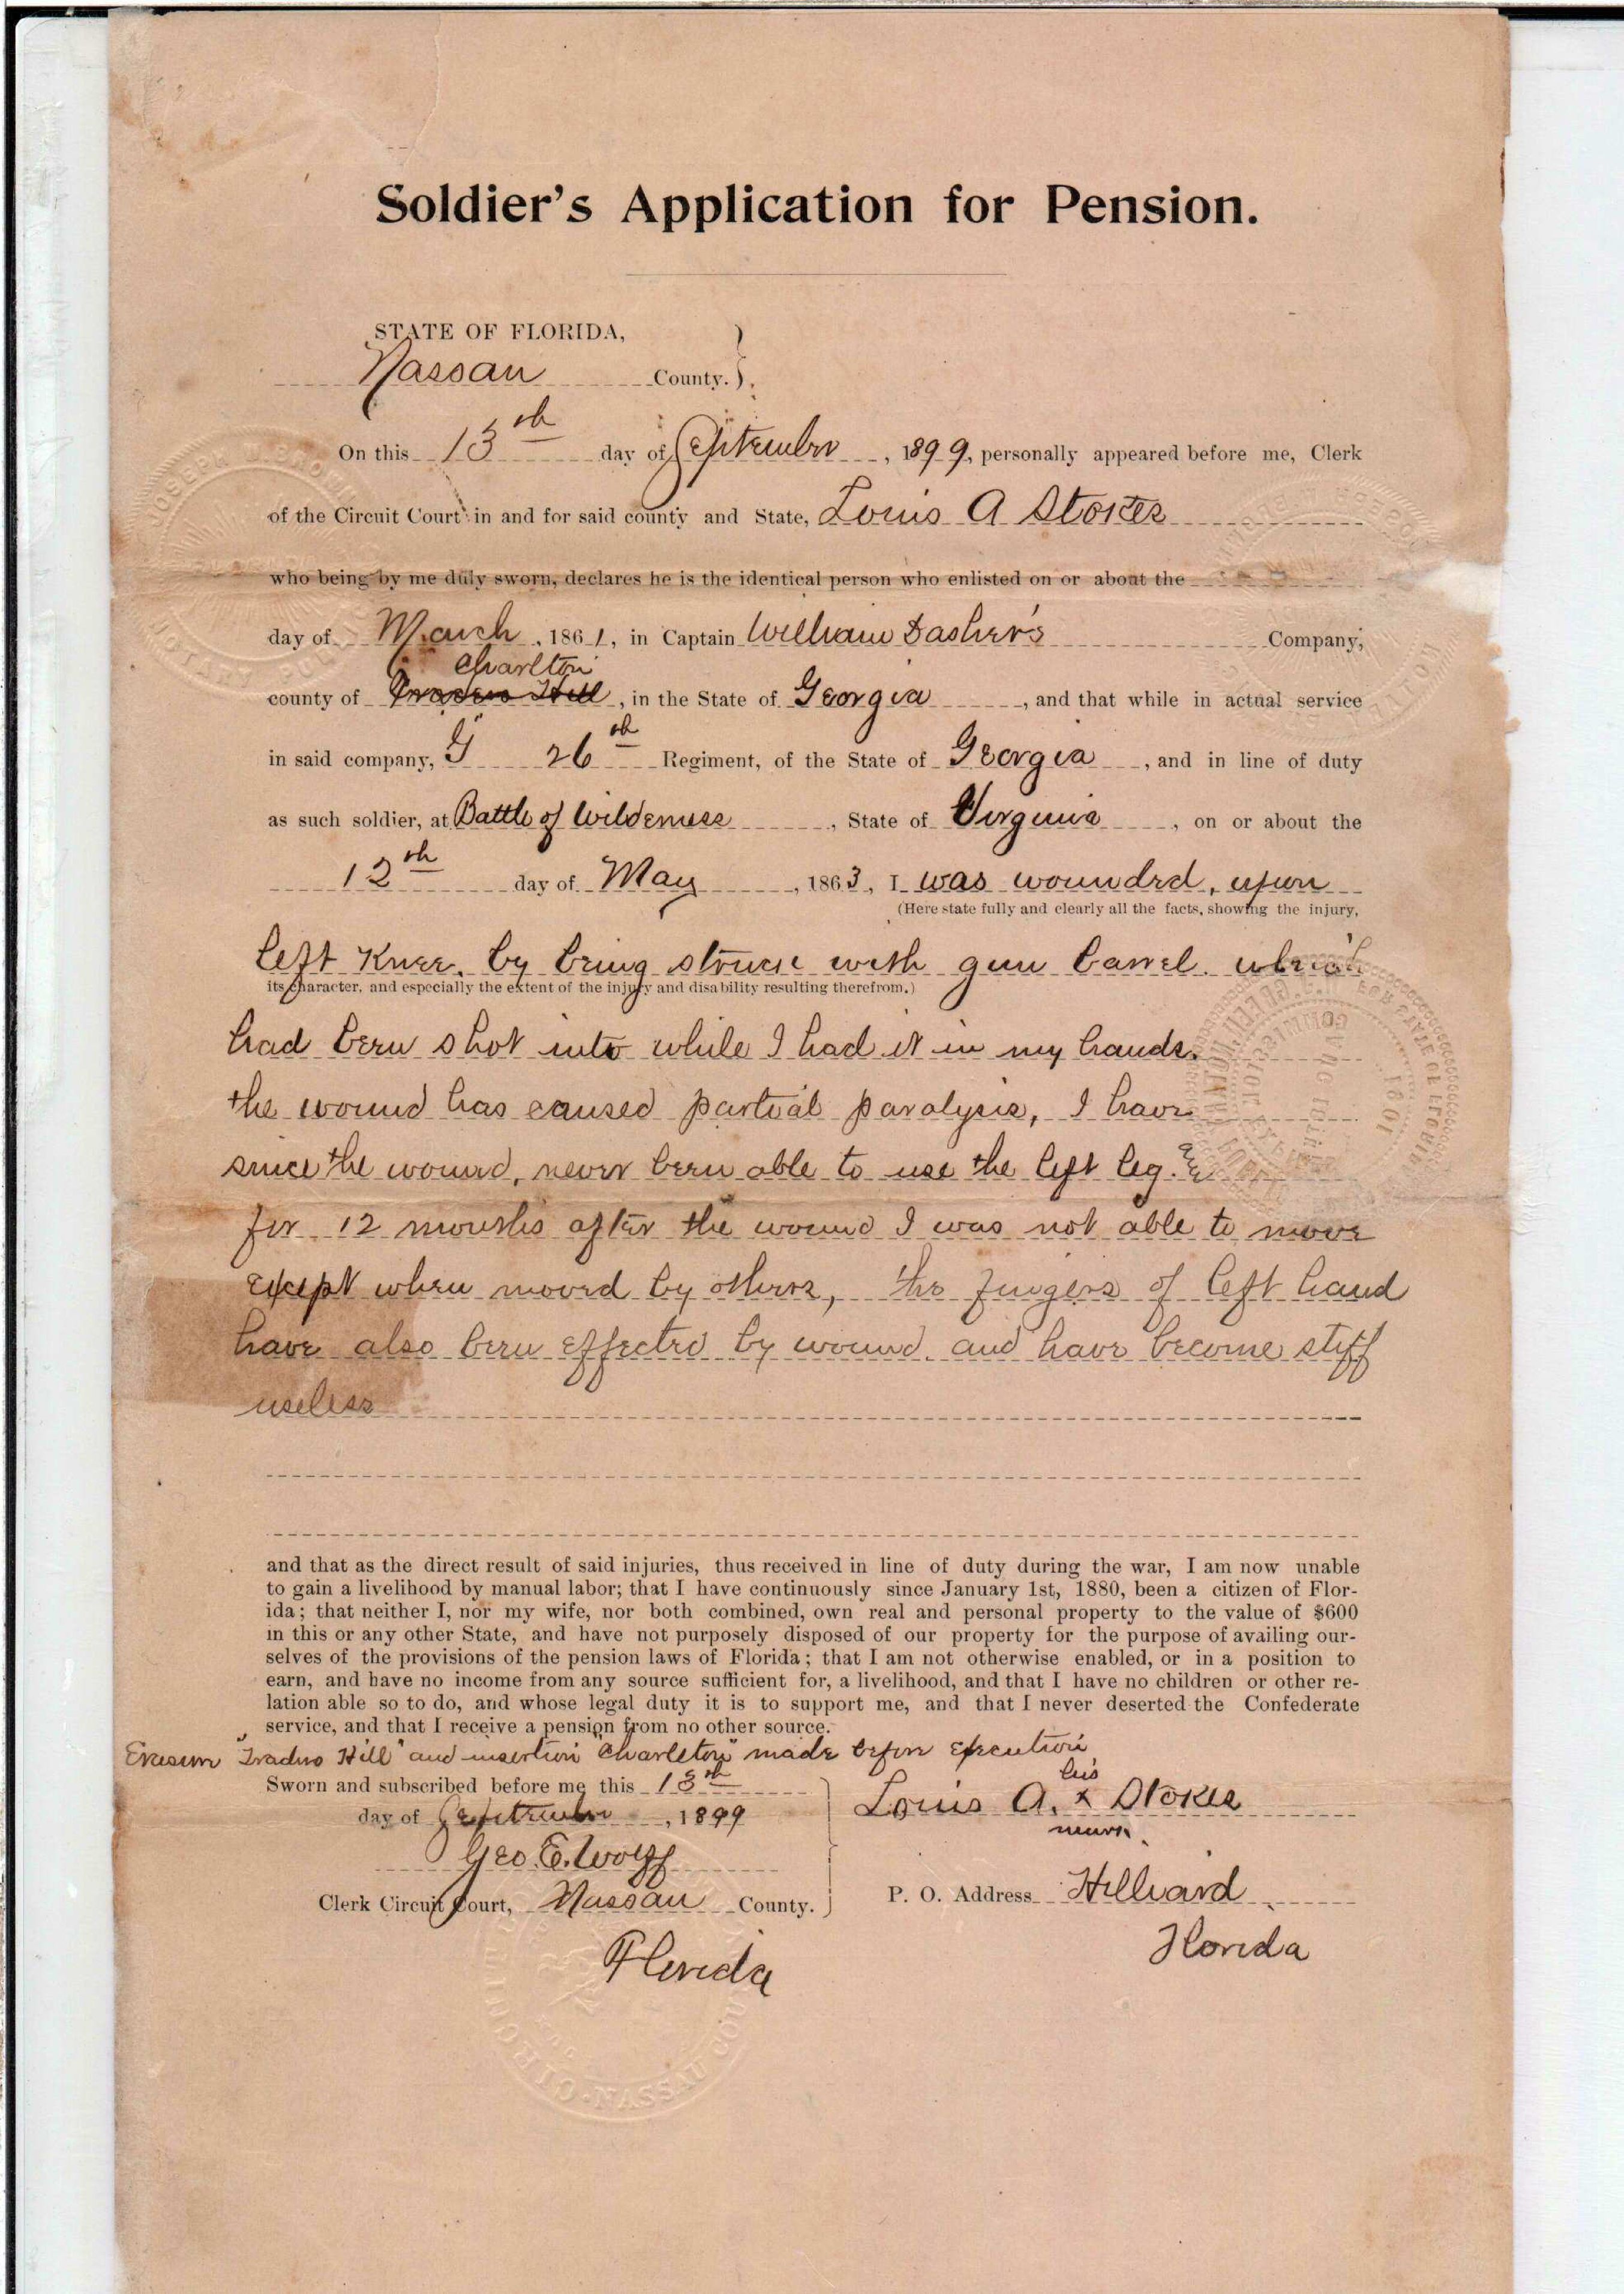 Soldier's Application for Pension.
STATE OF FLORIDA,
Nassau County.
On this 13th day of September, 1899, personally appeared before me, Clerk
of the Circuit Court in and for said county and State, Louis A Stokes
who being by me duly sworn, declares he is the identical person who enlisted on or about the
day of March, 1861, in Captain William Dasher's Company,
Charlton
county of Traders Hill, in the State of Georgia, and that while in actual service
in said company, G 26th Regiment, of the State of Georgia, and in line of duty
as such soldier, at Battle of Wilderness, State of Virginia, on or about the
12th day of May, 1863, I was wounded, upon
(Here state fully and clearly all the facts, showing the injury,
left Knee, by being struck with gun barrel. which
its character, and especially the extent of the injury and disability resulting therefrom.)
had been shot into while I had it in my hands.
the wound has caused partial paralysis, I have
since the wound, never been able to use the left leg. &
for 12 months after the wound I was not able to move
except when moved by others, the fingers of left hand
have also been effected by wound. and have become stiff
useless
and that as the direct result of said injuries, thus received in line of duty during the war, I am now unable
to gain a livelihood by manual labor; that I have continuously since January 1st, 1880, been a citizen of Flor-
ida; that neither I, nor my wife, nor both combined, own real and personal property to the value of $600
in this or any other State, and have not purposely disposed of our property for the purpose of availing our-
selves of the provisions of the pension laws of Florida; that I am not otherwise enabled, or in a position to
earn, and have no income from any source sufficient for, a livelihood, and that I have no children or other re-
lation able so to do, and whose legal duty it is to support me, and that I never deserted the Confederate
service, and that I receive a pension from no other source.
Erasure "Traders Hill" and insertion "Charlton" made before execution
Sworn and subscribed before me this 13th
day of September, 1899
Geo. E. Wolff
Clerk Circuit Court, Nassau County.
Florida
his
Louis A. x Stokes
mark.
P. O. Address Hilliard
Florida
NASSAU COUN